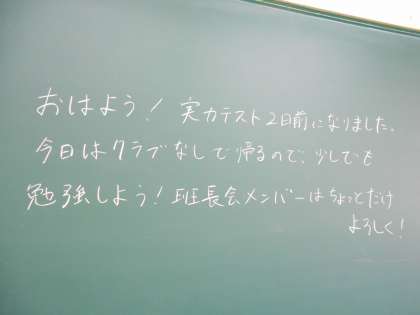 おはよう! 実力テスト2日前になりました。
今日はクラブなしで帰るので、少しでも
勉強しよう! 班長会メンバーはちょっとだけ
よろしく!